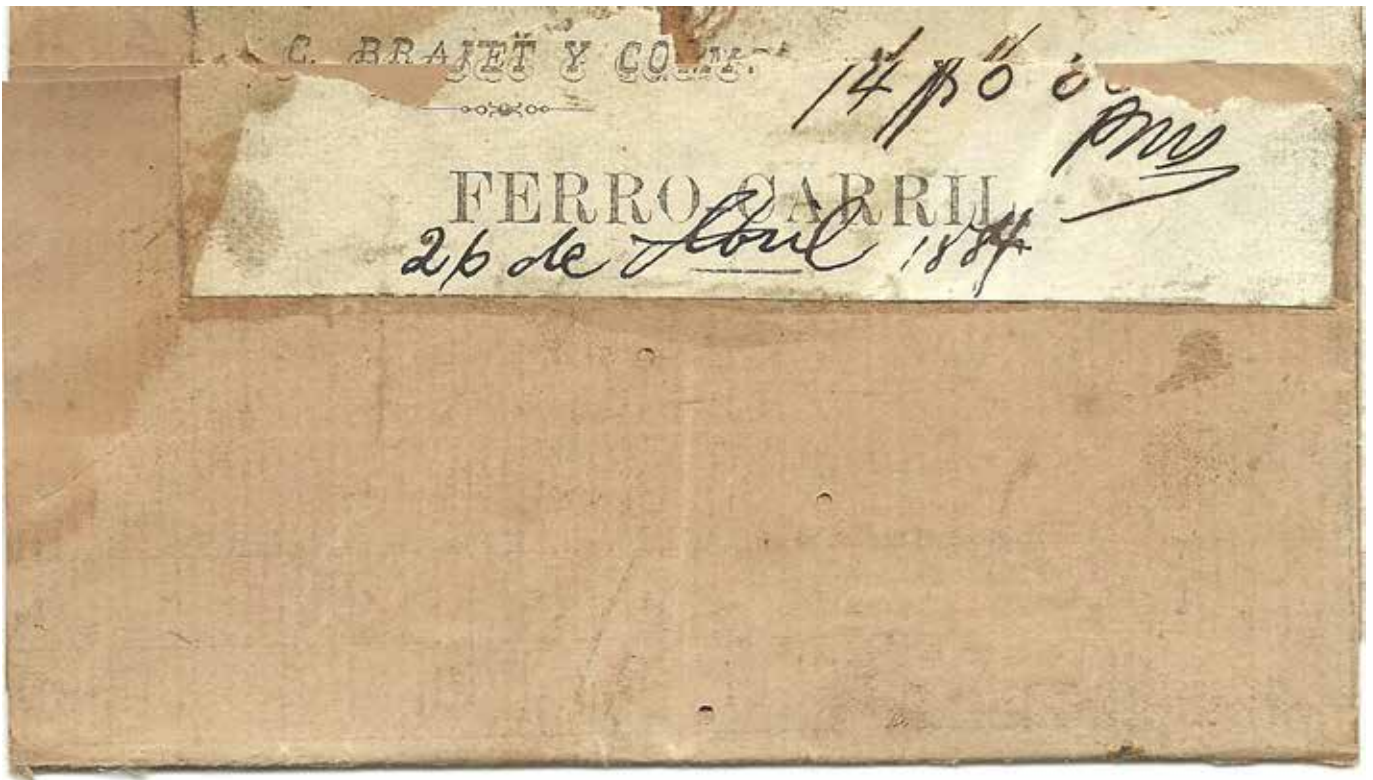 C. BRAJET Y COMP.
14
FERRO-CARRIL
26 de Abril 1884